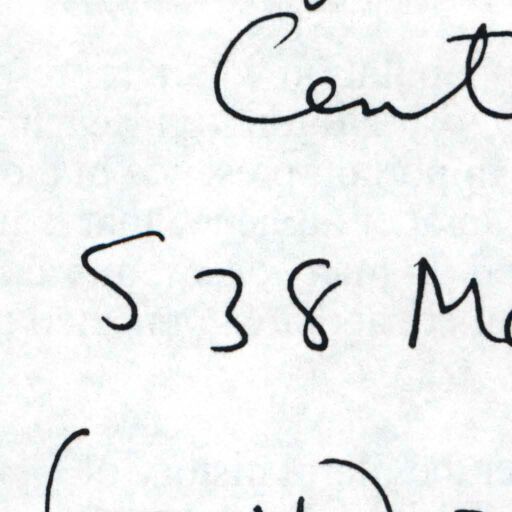 Cent
538 Me